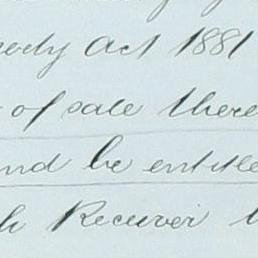 Act 1881
of sale there
and be entitle
Receiver